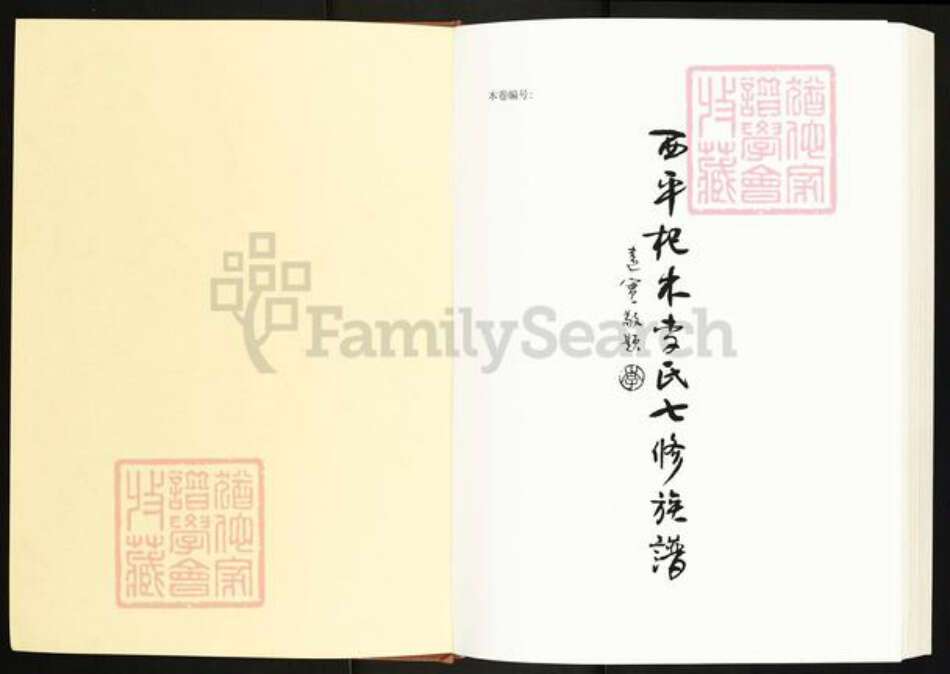 本卷编号:
西平杞木李氏七修族譜
遠實敬題
猶他家
譜學會
收藏
FamilySearch
猶他家
譜學會
收藏